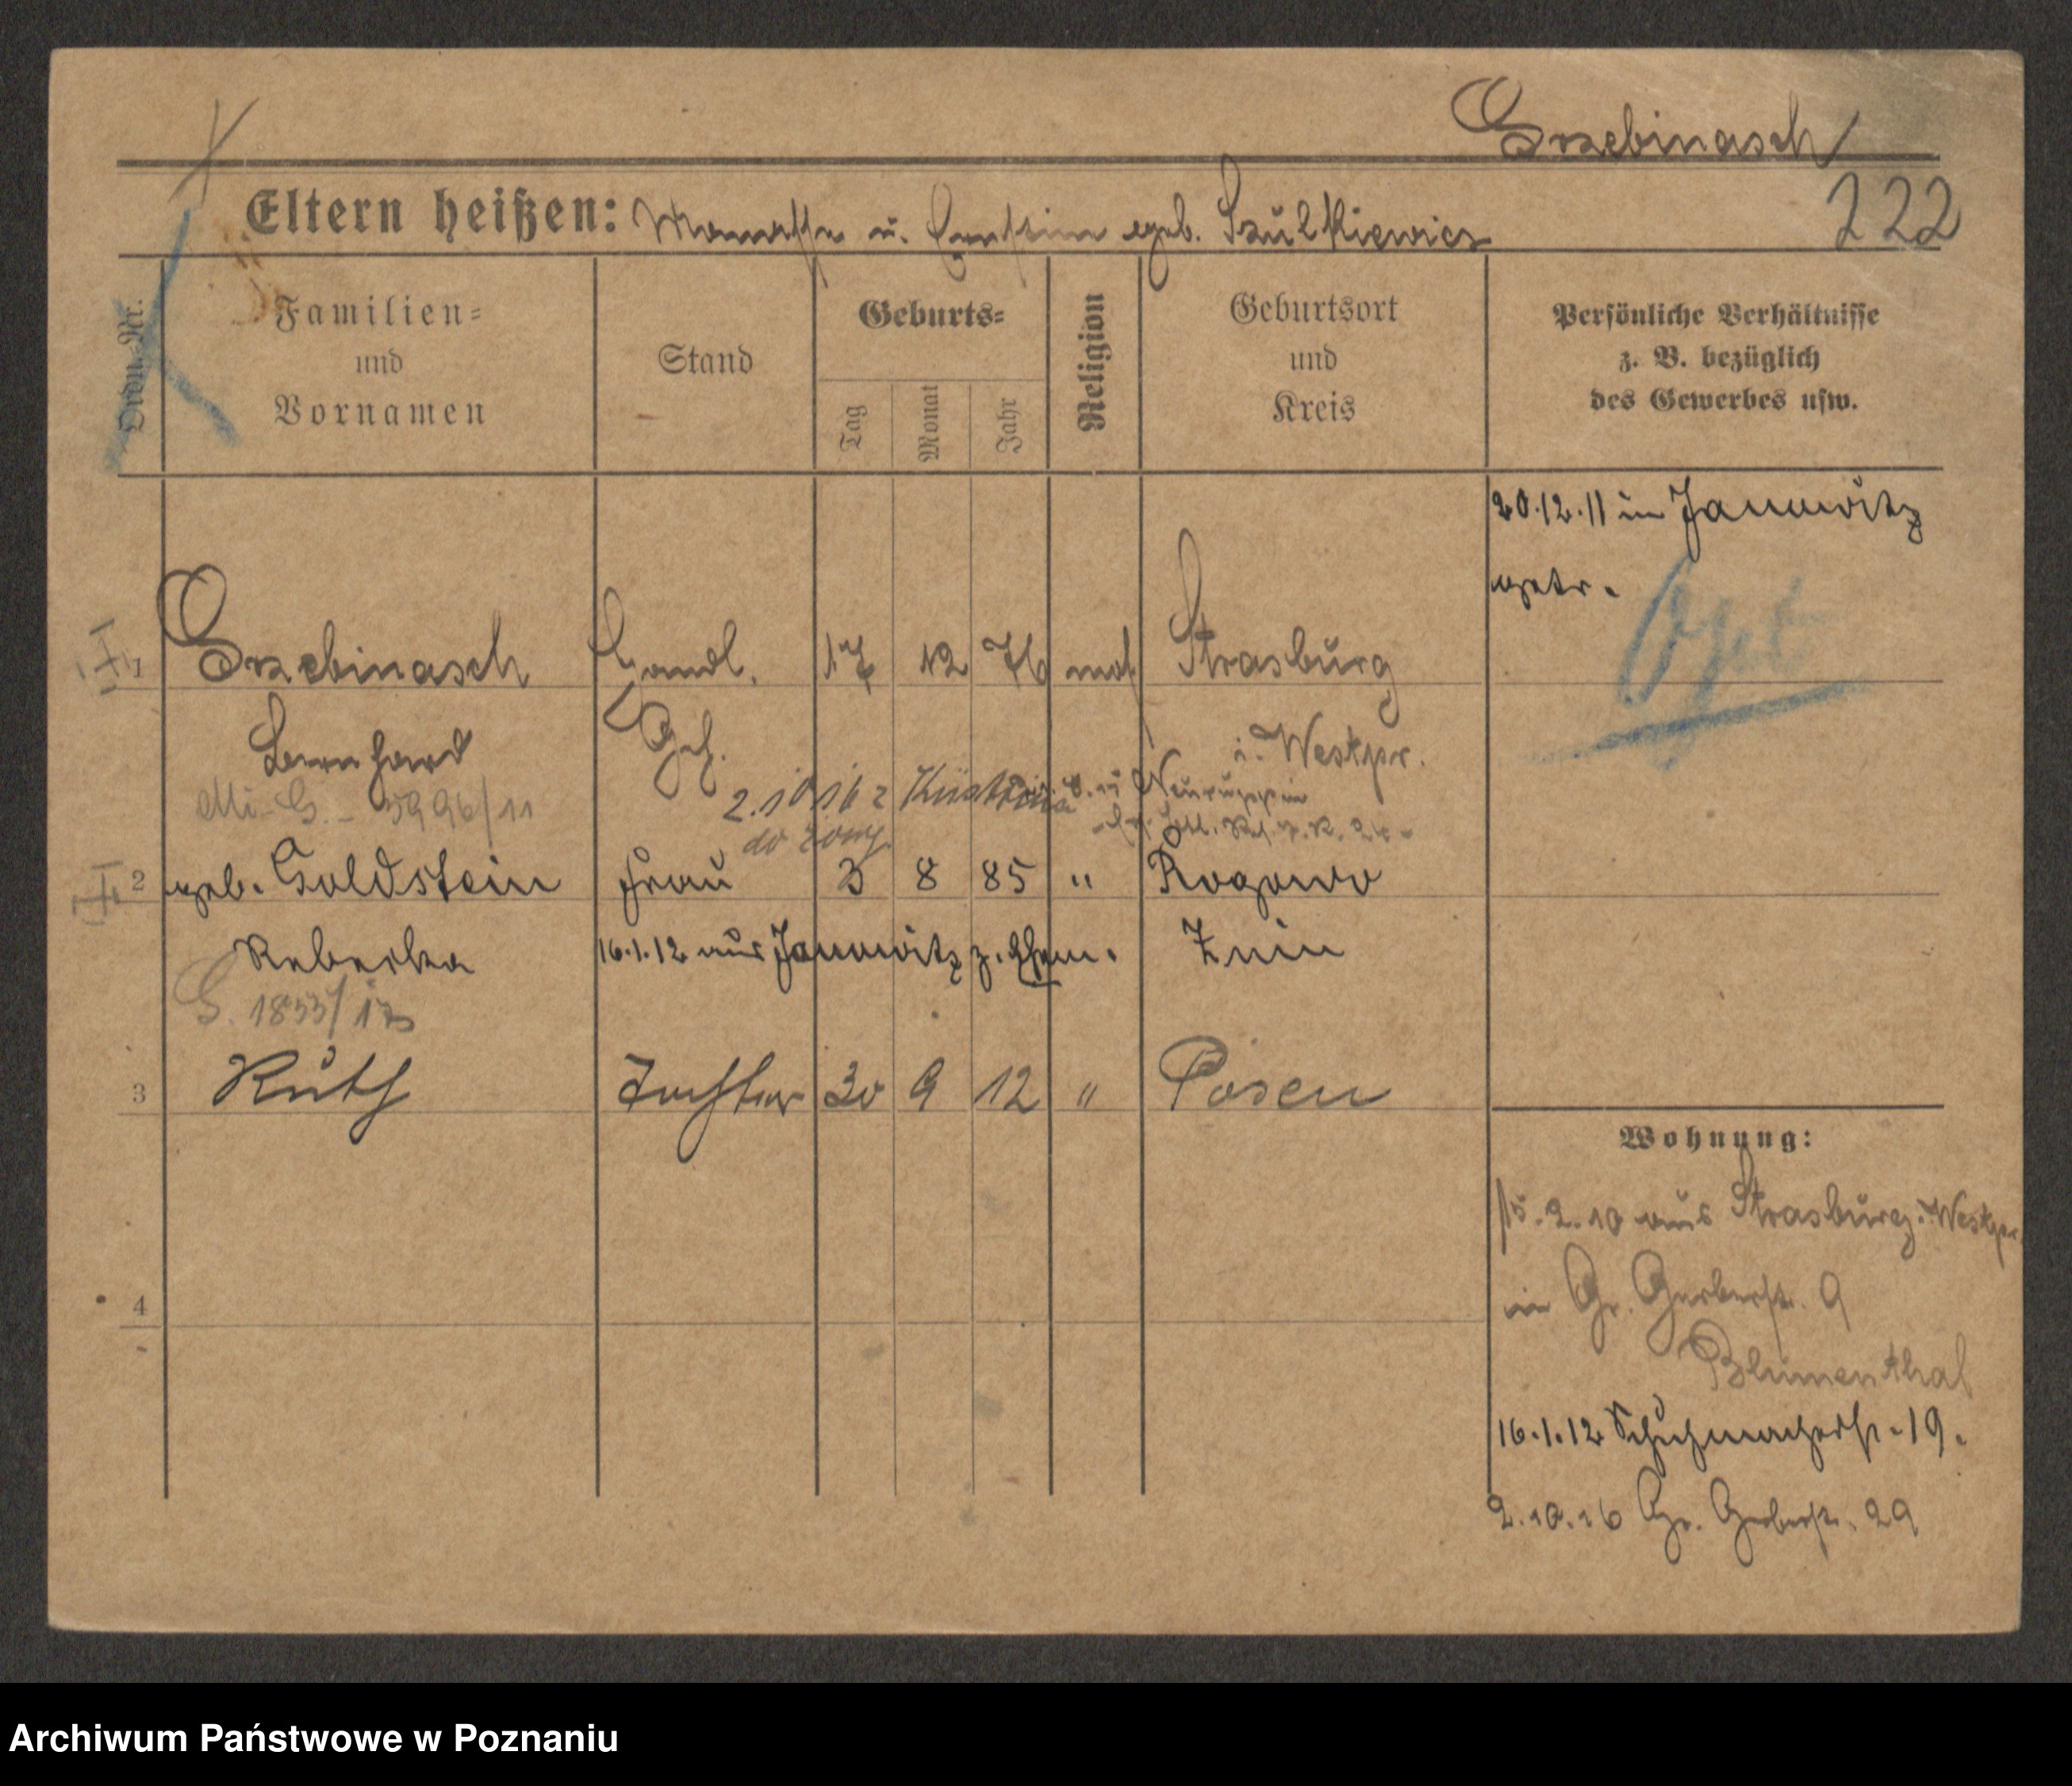 Grzebinasch
222
Eltern heißen: Manasse u. geb. Szulkiewicz
Ordn.-Nr.
Familien-
und
Vornamen
Stand
Geburts-
Tag
Monat
Jahr
Religion
Geburtsort
und
Kreis
Persönliche Verhältnisse
z. B. bezüglich
des Gewerbes usw.
20.12.11 in Janowitz
getr.
1 Grzebinasch Handl. 17 12 76 mos Strasburg
Bernhard Geh. i. Westpr.
Mi-G. - 5996/11
2.10.16 z Küstrina Neuruppin
do żony
2 geb. Goldstein Frau 3 8 85 " Rogowo
Rebecka 16.1.12 aus Janowitz z. Ehem. Znin
G. 1853/12
3 Ruth Tochter 30 9 12 " Posen
Wohnung:
15.2.10 aus Strasburg Westpr
in Gr. Gerberstr. 9
Blumenthal
16.1.12 Schuhmacherstr. 19.
2.10.16 Gr. Gerberstr. 29
4
Archiwum Państwowe w Poznaniu